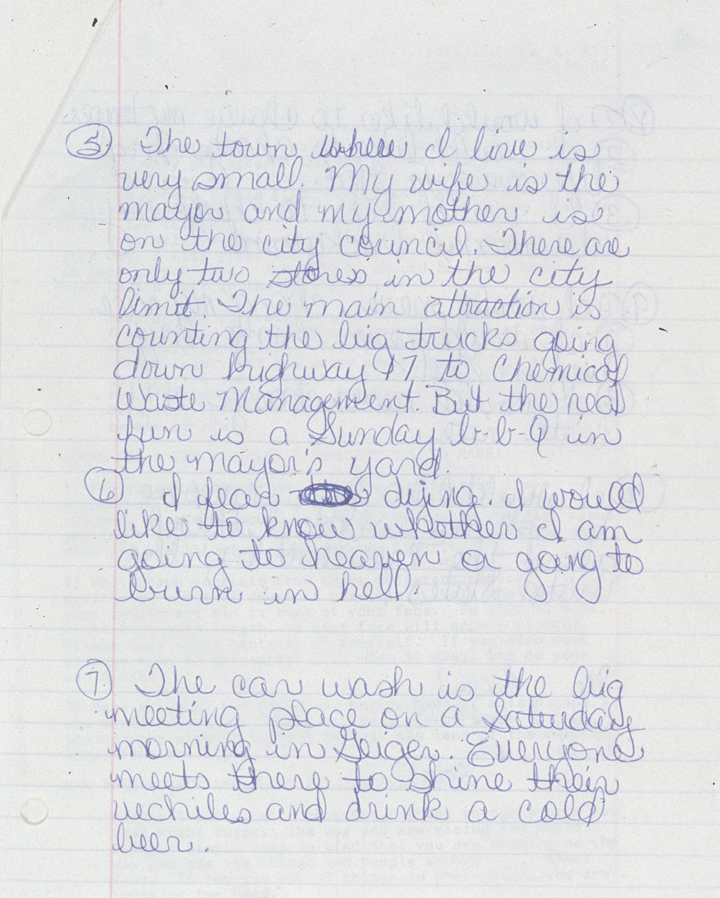 5 The town where I live is
very small. My wife is the
mayor and my mother is
on the city council. There are
only two stores in the city
limit. The main attraction is
counting the big trucks going
down highway 17 to Chemical
Waste Management. But the real
fun is a Sunday b-b-Q in
the mayor's yard.
6 I fear dying. I would
like to know whether I am
going to heaven or going to
burn in hell.
7 The car wash is the big
meeting place on a Saturday
morning in Geiger. Everyone
meets there to shine their
vechiles and drink a cold
beer.